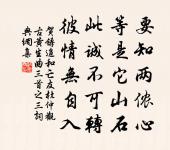 要知两侬心
等是它山石
此誠不可轉
彼情無自入
賀鑄追和亡友杜仲觀
古黄生曲三首之三詞
典網集